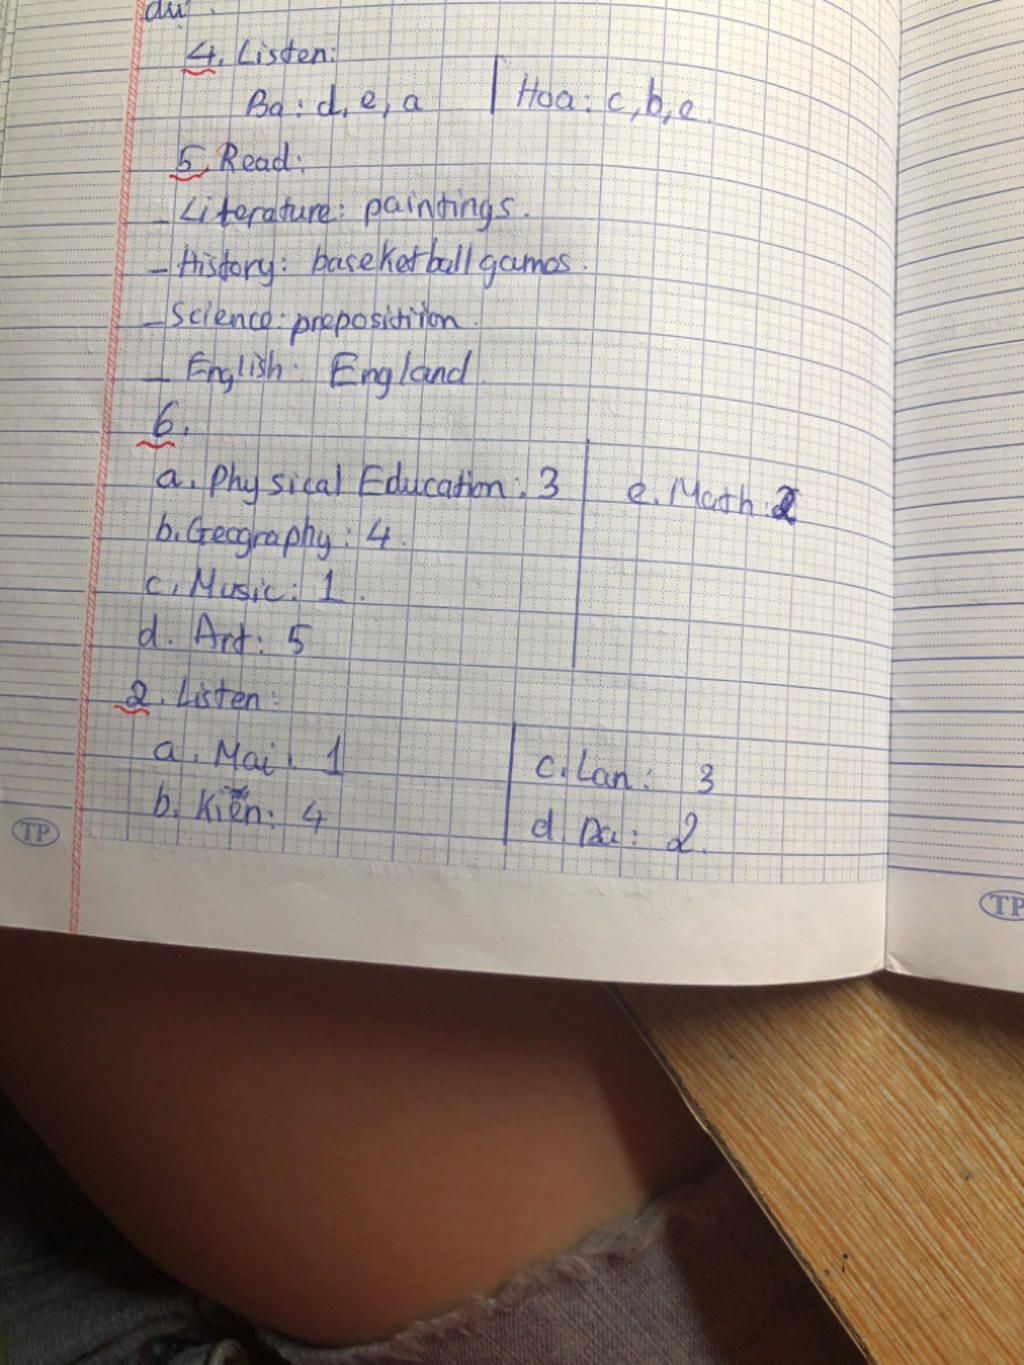 du.
4. Listen:
Ba: d, e, a | Hoa: c, b, e.
5. Read:
- Literature: paintings.
- History: baseketball games.
- Science: preposicition.
- English: England
6.
a. Physical Education: 3 | e. Math: 2
b. Geography: 4.
c. Music: 1.
d. Art: 5
2. Listen:
a. Mai: 1 | c. Lan: 3
b. Kiên: 4 | d. Ba: 2.
TP
TP